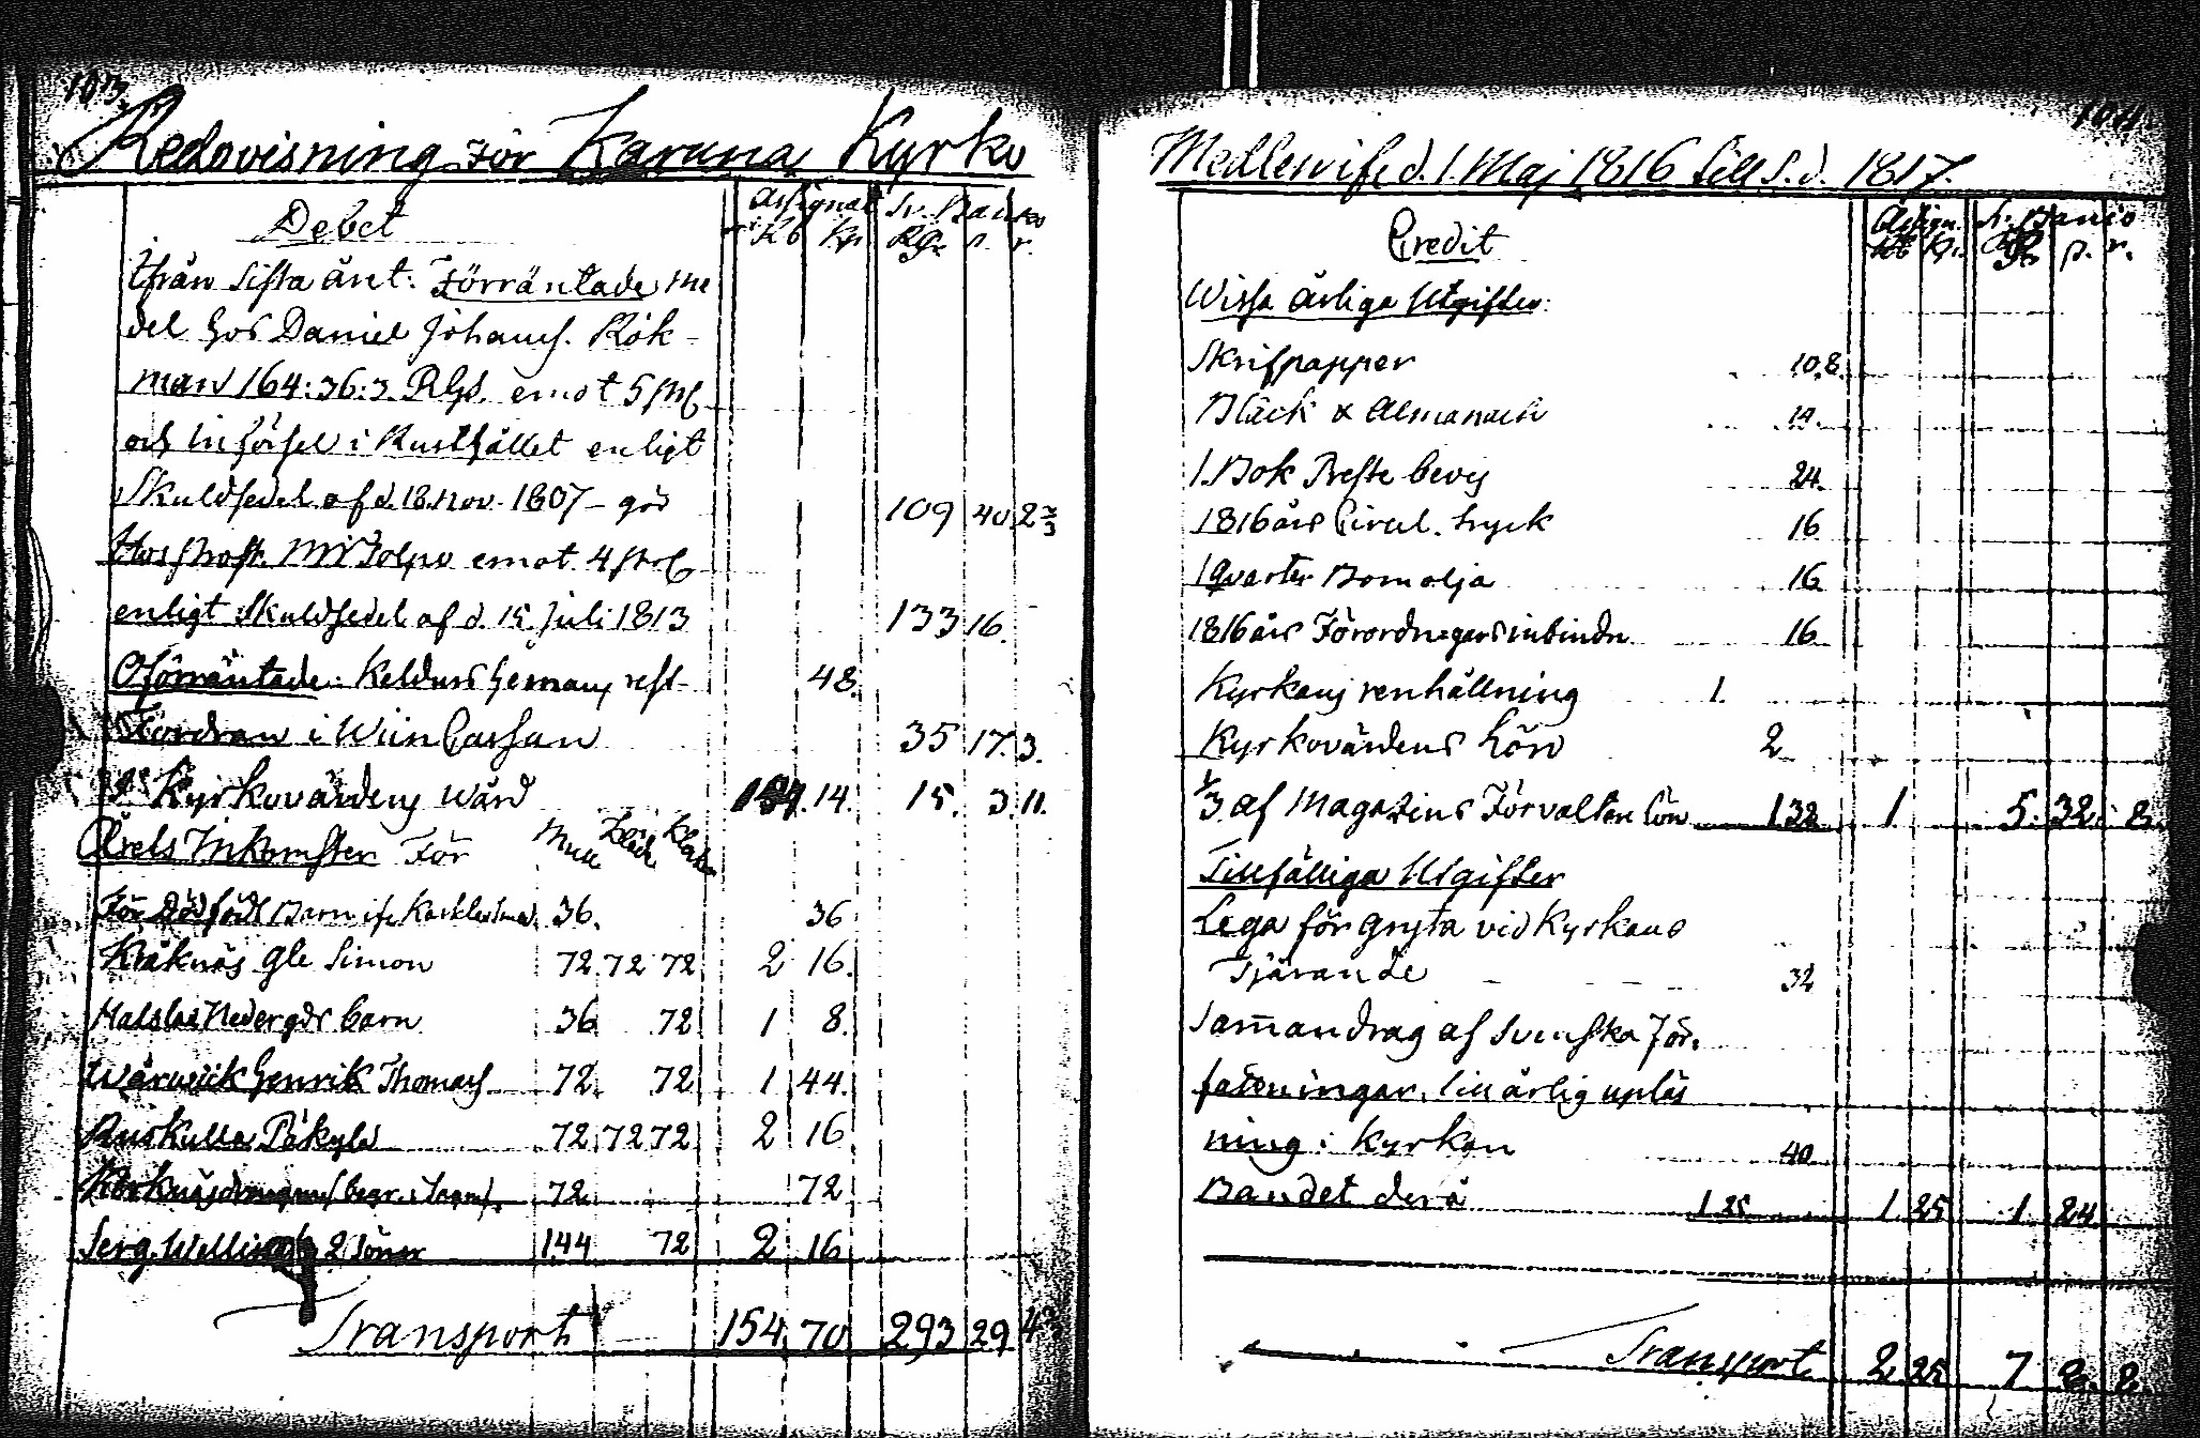 103
Redovisning för Karuna Kyrko
Debet
Assignat Sv. Banko
Rb Kp. Rgr s. r.
ifrån sista änt: Förräntade me
del hos Daniel Johans. Rök-
man 164:36:3 Rgs. emot 5 pr%
och införsel i Rusthållet enligt
Skuldsedel af d. 18. Nov. 1807 - gör 109 40 2 2/3
Hos Prost. emot 4 pr%
enligt Skuldsedel af d. 15. Juli 1813 133 16.
Oförräntade: Keldurs hemans rest- 48.
Fordran i Wiin Cassan 35 17. 3.
I Kyrkovärdens Wård 14. 15. 3. 11.
Årets Inkomster För Mull Kläde Klock
För Dödfödt Barn ifr. 36. 36
Kråknäs gle Simon 72. 72 72 2 16.
Nedergårds barn 36 72 1 8.
Wärwick Henrik Thomas 72. 72 1 44.
72. 72 72 2 16
72. 72
Serg. 2 Söner 144 72 2 16
Transport 154 70 293 29 4 2/3
104
Medlen ifr. d. 1. Maj 1816 till s. d. 1817.
Credit
Assign. Sv. Banco
Rb Kp. Rgr s. r.
Wissa årliga Utgifter:
Skrifpapper 10.8.
Bläck & Almanach 14.
1. Bok Preste bevis 24.
1816 års Circul. tryck 16
1 qvarter Bomolja 16
1816 års Förordn:gars inbindn 16
Kyrkans renhållning 1.
Kyrkovärdens Lön 2
1/3 af Magazins Förvaltan lön 1.32 1 5. 32. 8.
Tillfälliga Utgifter
Lega för gryta vid Kyrkans
Tjärande 32
Sam̄andrag af Svenska För.
fattningar, till årlig upläs
ning i Kyrkan 40
Bandet derå 1.25 1. 25 1. 24.
Transport 2. 25 7 8. 8.